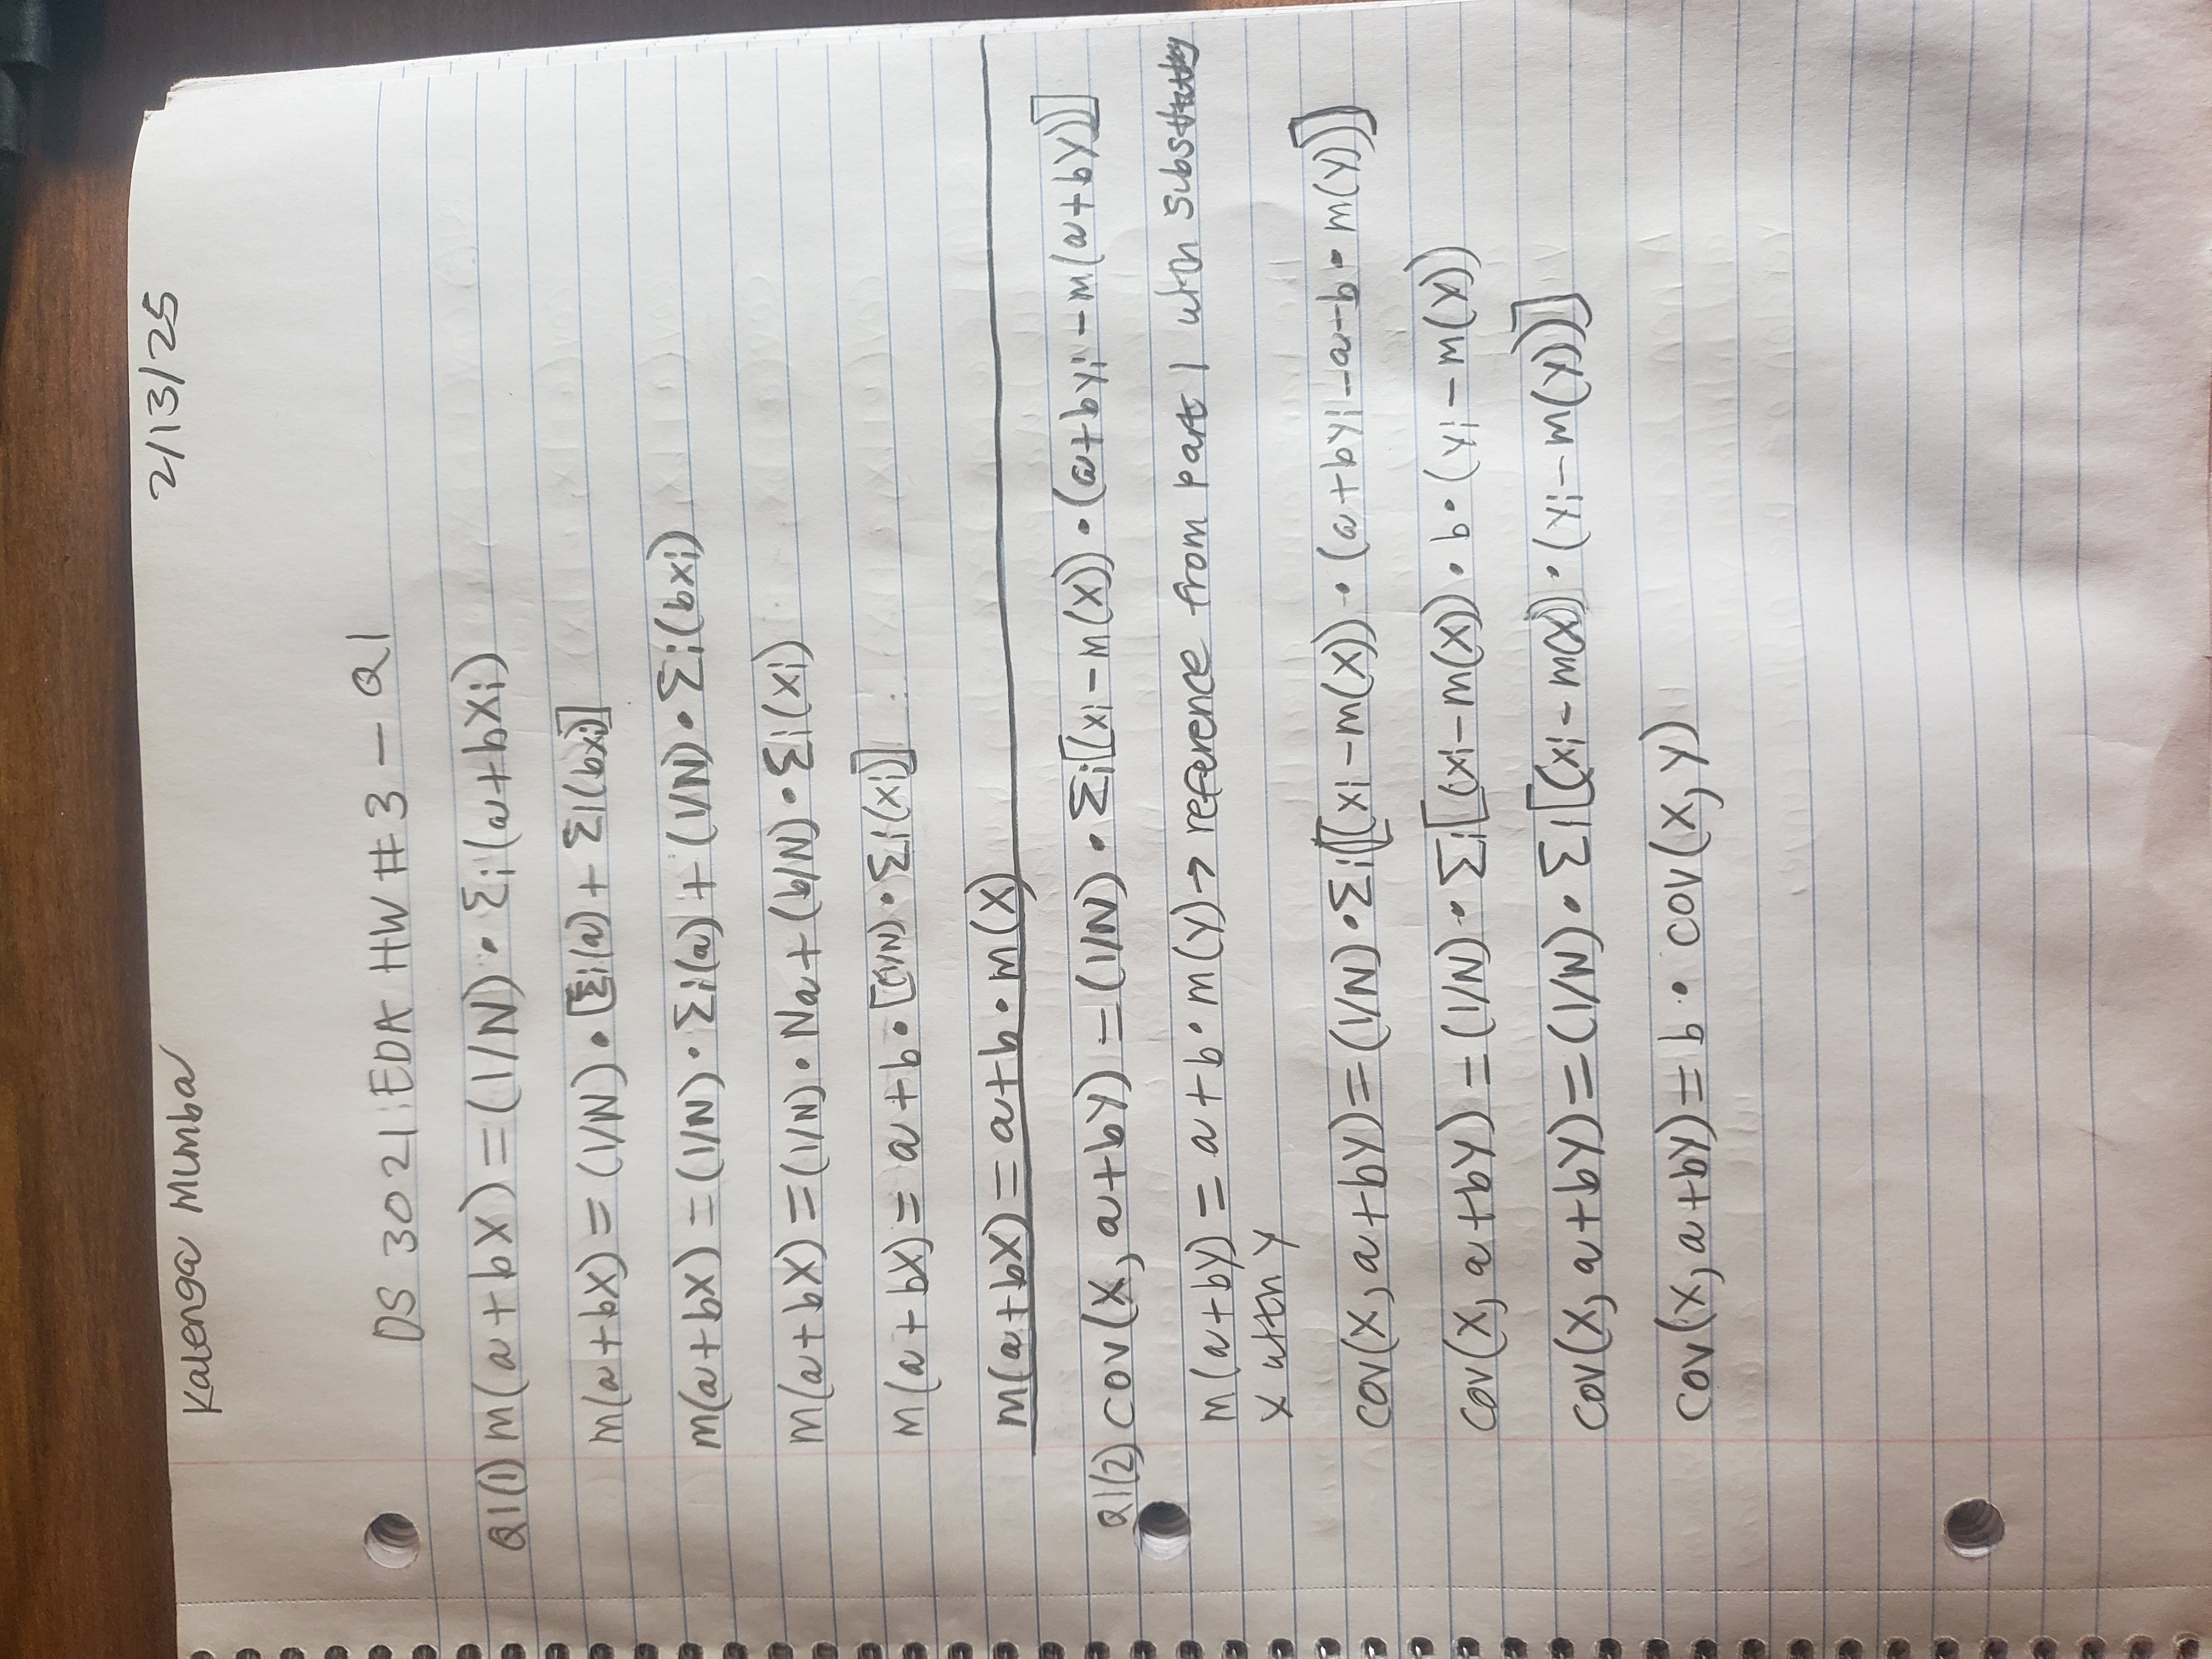 Kalenga Mumba 2/13/25
DS 3021: EDA HW #3 — Q1
Q1(1) m(a+bX) = (1/N) • Σi(a+bXi)
m(a+bX) = (1/N) • [Σi(a) + Σi(bxi)]
m(a+bX) = (1/N) • Σi(a) + (1/N) • Σi(bxi)
m(a+bX) = (1/N) • Na + (b/N) • Σi(xi)
m(a+bX) = a + b • [(1/N) • Σi(xi)]
m(a+bX) = a+b • m(X)
Q1(2) cov(X, a+bY) = (1/N) • Σi[(xi – m(X)) • (a+byi – m(a+bY)]
m(a+by) = a + b • m(y) → reference from part 1 with substituting
X with Y
cov(X, a+bY) = (1/N) • Σi[(xi – m(X)) • (a+byi – a – b • m(Y))]
cov(X, a+bY) = (1/N) • Σi[(xi – m(X)) • b • (yi – m(Y))
cov(X, a+bY) = (1/N) • Σi[(xi – m(X)) • (yi – m(y))]
cov(X, a+bY) = b • cov(X, Y)